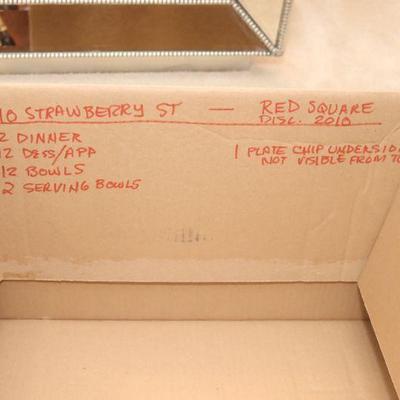 10 STRAWBERRY ST — RED SQUARE
DISC. 2010
2 DINNER
12 DESS/APP
12 BOWLS
2 SERVING BOWLS
1 PLATE CHIP UNDERSID
NOT VISIBLE FROM TO